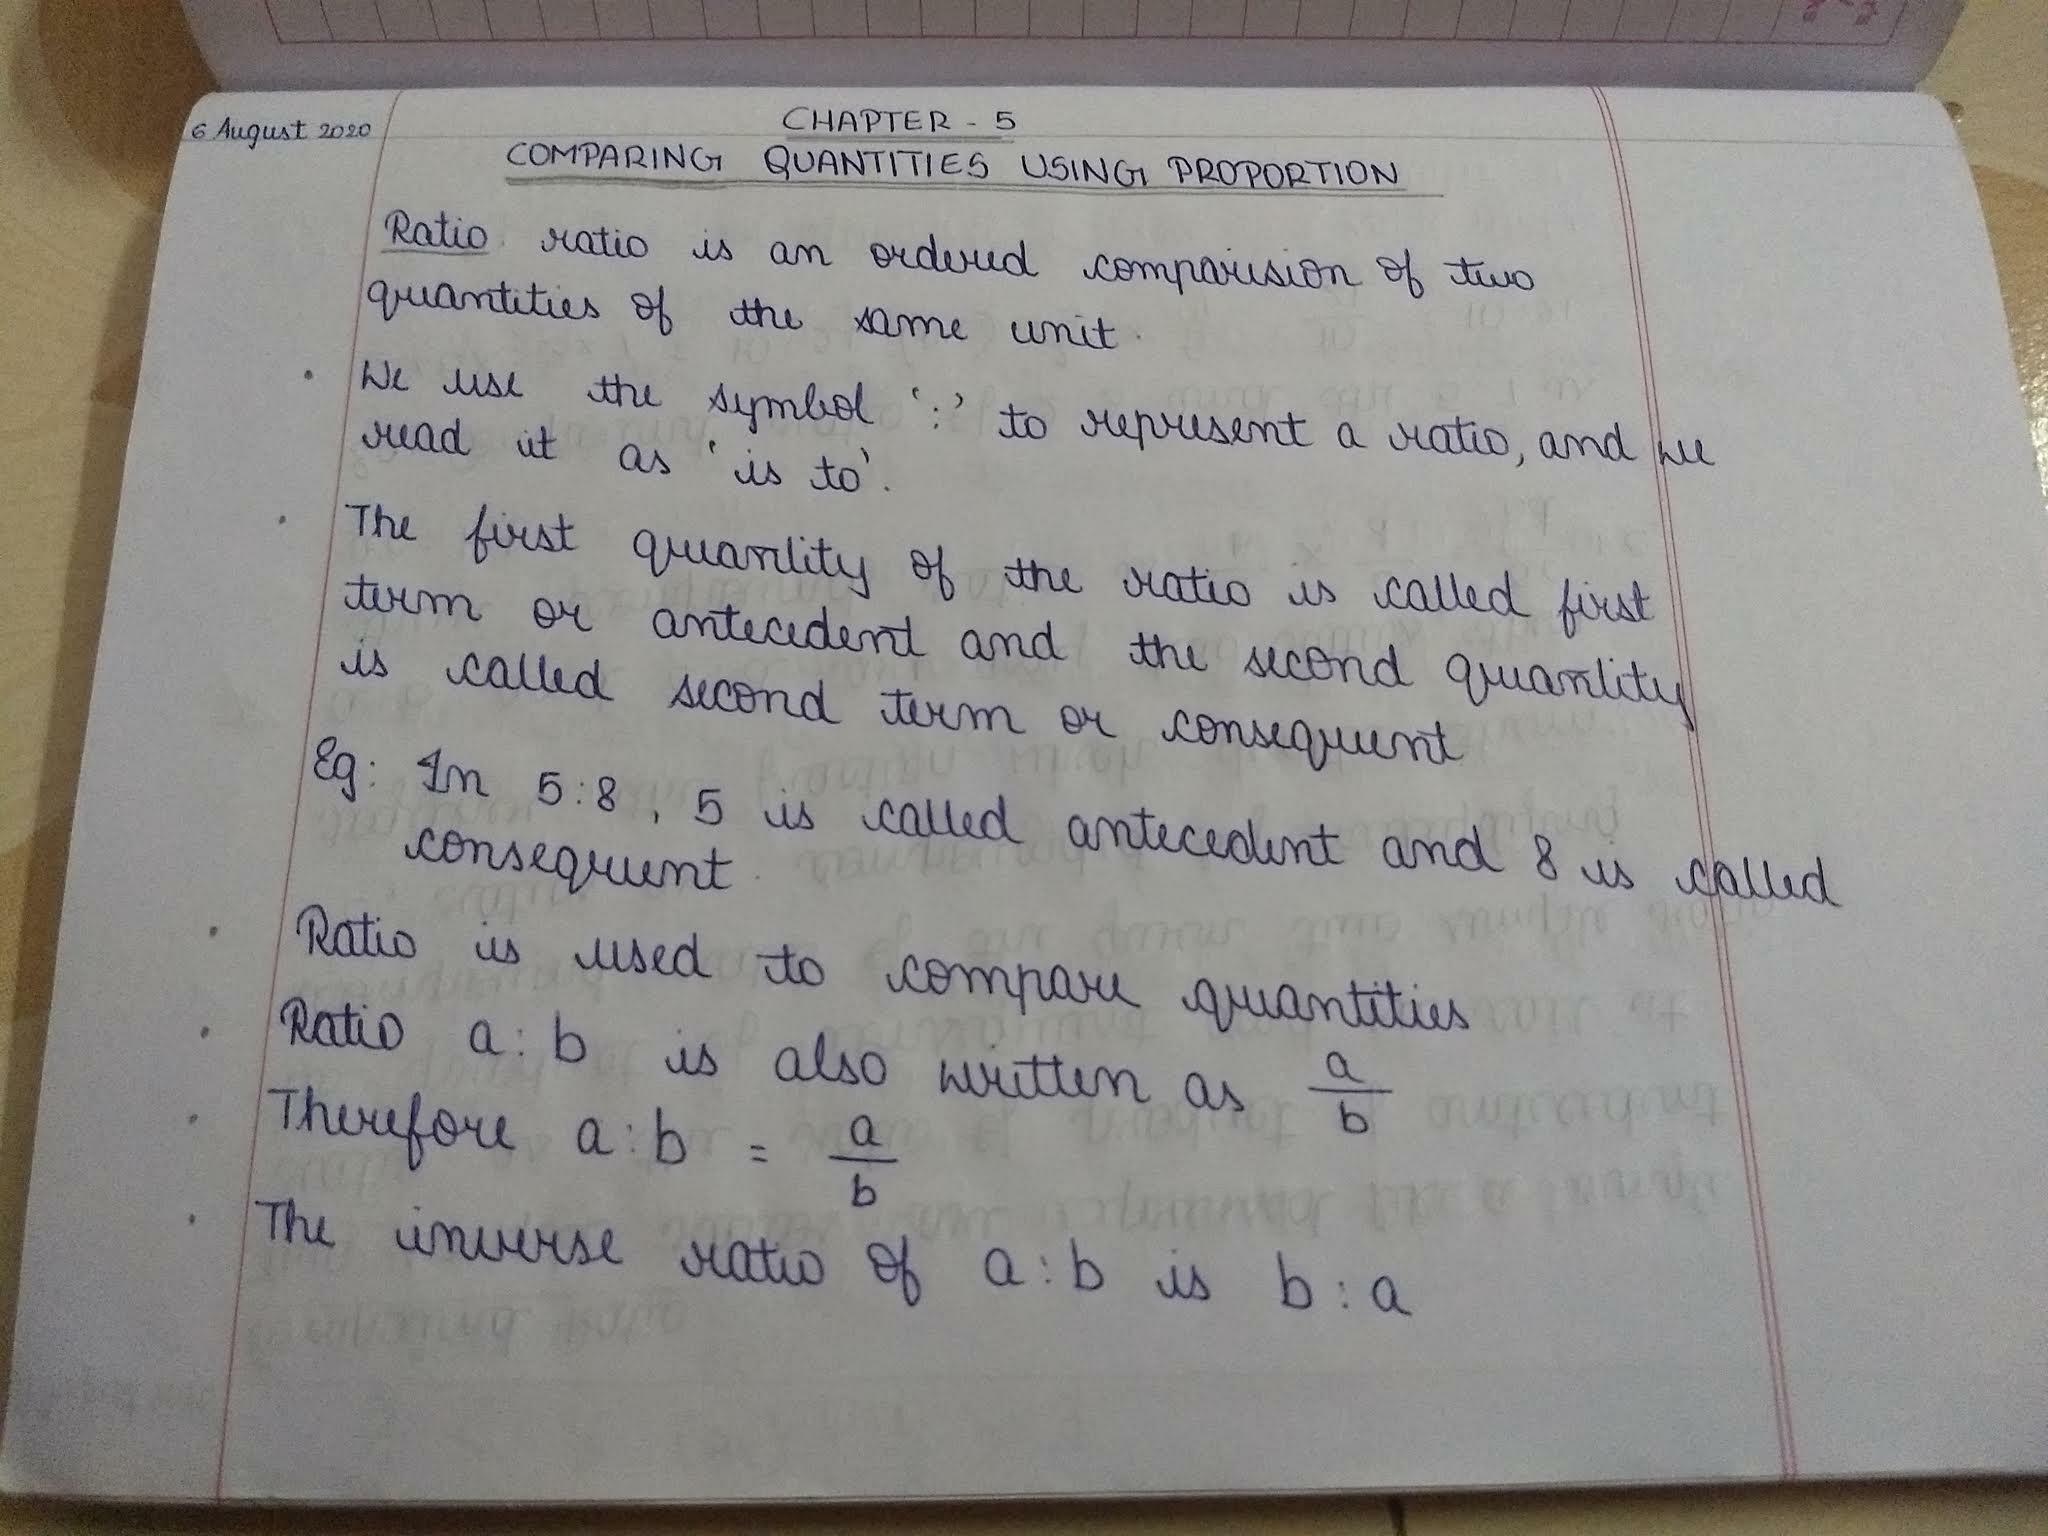 6 August 2020
CHAPTER - 5
COMPARING QUANTITIES USING PROPORTION
Ratio ratio is an ordered comparision of two
quantities of the same unit.
• We use the symbol ‘:’ to represent a ratio, and we
read it as ‘is to’.
• The first quantity of the ratio is called first
term or antecedent and the second quantity
is called second term or consequent
Eg: In 5:8, 5 is called antecedent and 8 is called
consequent.
• Ratio is used to compare quantities
• Ratio a:b is also written as a/b
• Therefore a:b = a/b
• The inverse ratio of a:b is b:a